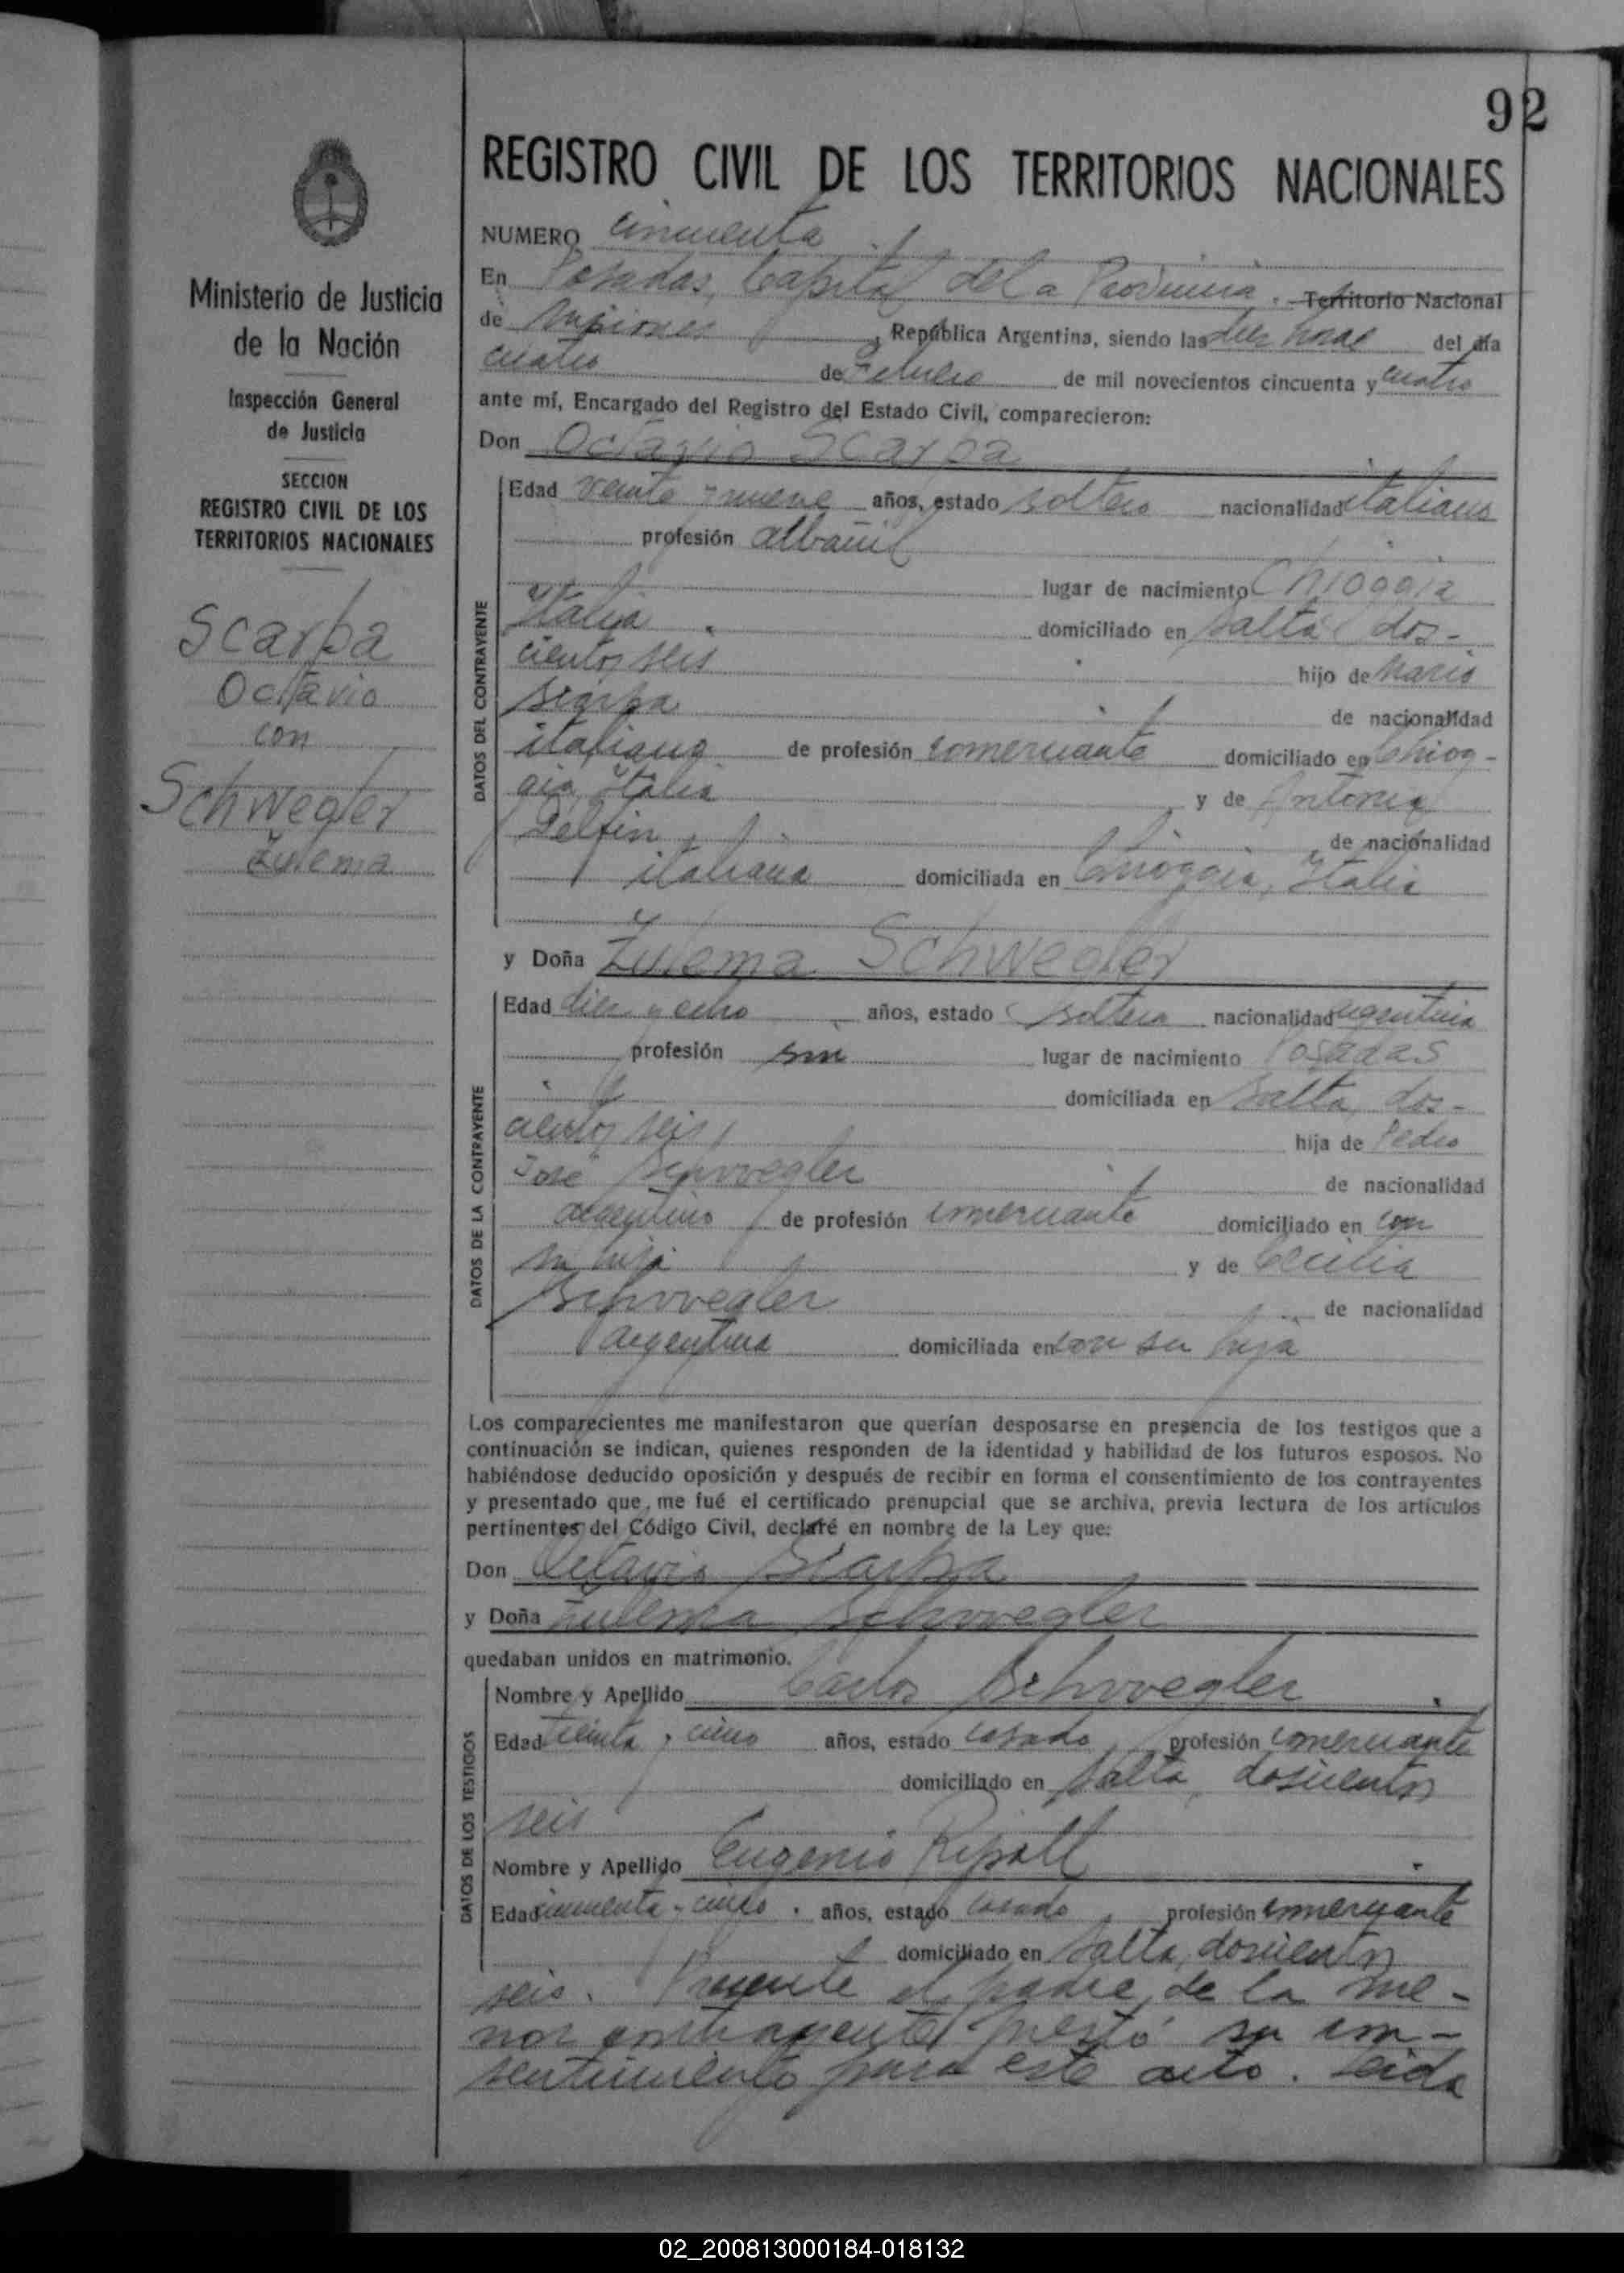 92
REGISTRO CIVIL DE LOS TERRITORIOS NACIONALES
Ministerio de Justicia
de la Nación
Inspección General
de Justicia
SECCION
REGISTRO CIVIL DE LOS
TERRITORIOS NACIONALES
Scarpa
Octavio
con
Schwegler
Zulema
NUMERO cincuenta
En Posadas, Capital de la Provincia, Territorio Nacional
de Misiones, República Argentina, siendo las diez horas del día
cuatro de Febrero de mil novecientos cincuenta y cuatro
ante mí, Encargado del Registro del Estado Civil, comparecieron:
Don Octavio Scarpa
DATOS DEL CONTRAYENTE
Edad veinte y nueve años, estado soltero nacionalidad italiano
profesión albañil
lugar de nacimiento Chioggia
Italia. domiciliado en Salta dos-
cientos seis hijo de Mario
Scarpa de nacionalidad
italiano de profesión comerciante domiciliado en Chiog-
gia Italia y de Antonia
Delfin, de nacionalidad
italiana domiciliada en Chioggia, Italia
y Doña Zulema Schwegler
DATOS DE LA CONTRAYENTE
Edad diez y ocho años, estado soltera nacionalidad argentina
profesión sin lugar de nacimiento Posadas
domiciliada en Salta, dos-
cientos seis, hija de Pedro
José Schwegler de nacionalidad
argentino de profesión comerciante domiciliado en con
su hija y de Cecilia
Schwegler de nacionalidad
argentina domiciliada en con su hija
Los comparecientes me manifestaron que querían desposarse en presencia de los testigos que a
continuación se indican, quienes responden de la identidad y habilidad de los futuros esposos. No
habiéndose deducido oposición y después de recibir en forma el consentimiento de los contrayentes
y presentado que me fué el certificado prenupcial que se archiva, previa lectura de los artículos
pertinentes del Código Civil, declaré en nombre de la Ley que:
Don Octavio Scarpa
y Doña Zulema Schwegler
quedaban unidos en matrimonio.
DATOS DE LOS TESTIGOS
Nombre y Apellido Carlos Schwegler
Edad treinta y cinco años, estado casado profesión comerciante
domiciliado en Salta, doscientos
seis
Nombre y Apellido Eugenio Ripoll
Edad cincuenta y cinco años, estado casado profesión comerciante
domiciliado en Salta, doscientos
seis. Presente el padre de la me-
nor contrayente prestó su con-
sentimiento para este acto. Leída
02_200813000184-018132